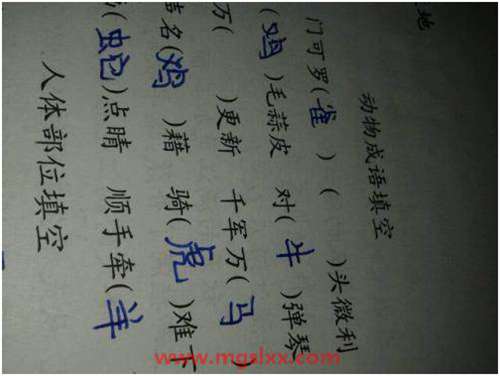 地
动物成语填空
门可罗(雀) ( )头微利
(鸡)毛蒜皮 对(牛)弹琴
万( )更新 千军万(马)
名(鸡)籍 骑(虎)难下
(蛇)点晴 顺手牵(羊)
人体部位填空
www.mgslxx.com